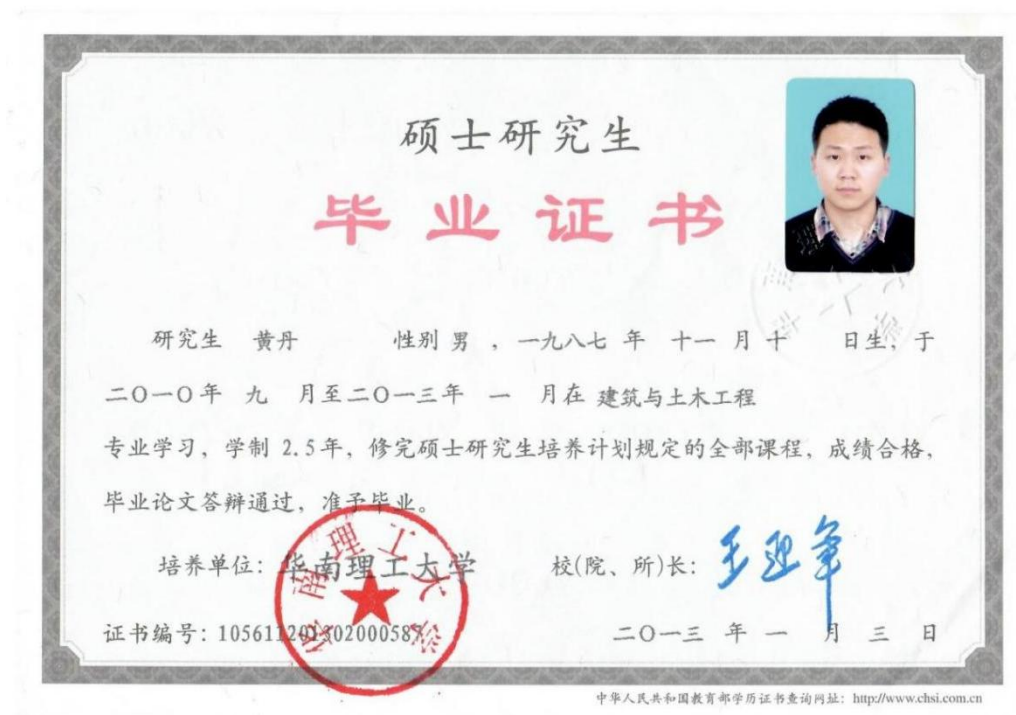 硕士研究生
毕业证书
研究生 黄丹 性别 男 ，一九八七 年 十一 月 十 日生，于
二〇一〇年 九 月至二〇一三年 一 月在 建筑与土木工程
专业学习，学制 2.5年，修完硕士研究生培养计划规定的全部课程，成绩合格，
毕业论文答辩通过，准予毕业。
培养单位：华南理工大学 校(院、所)长：王迎军
华南理工大学
证书编号：105611201302000587 二〇一三 年 一 月 三 日
中华人民共和国教育部学历证书查询网址：http://www.chsi.com.cn